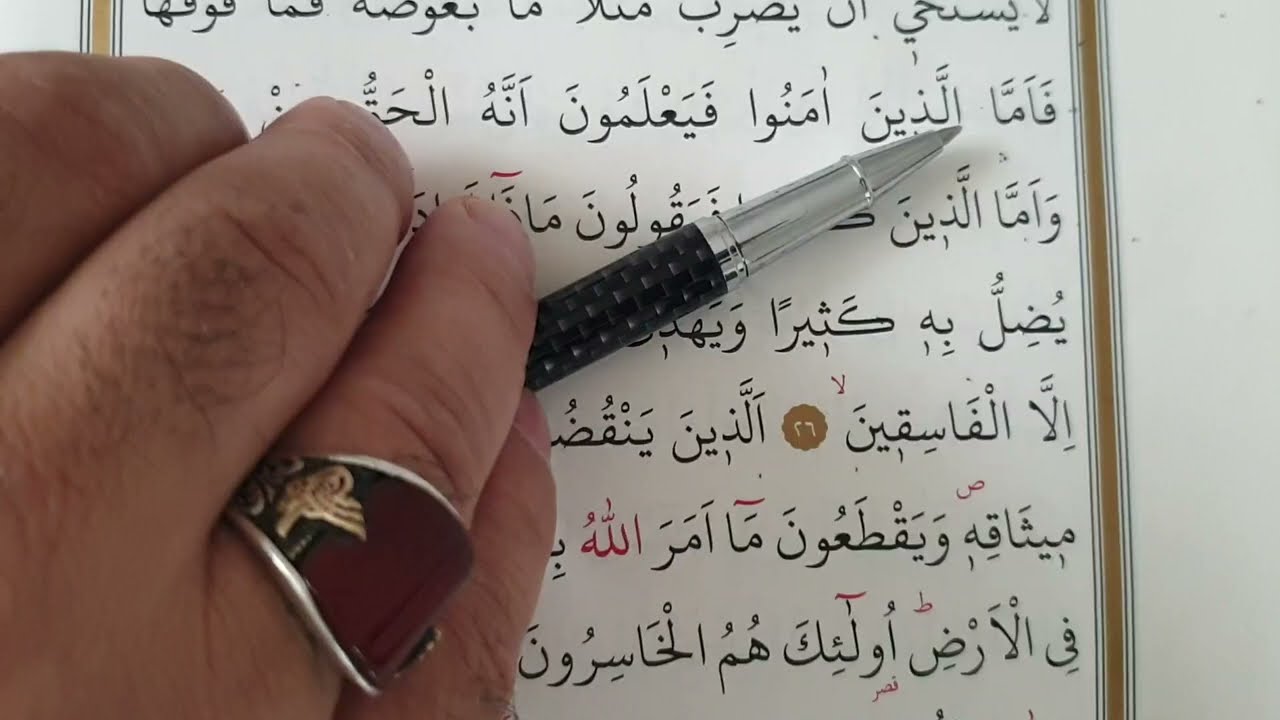 لَا يَسْتَحْيٖٓ اَنْ يَضْرِبَ مَثَلًا مَا بَعُوضَةً فَمَا فَوْقَهَا
فَاَمَّا الَّذٖينَ اٰمَنُوا فَيَعْلَمُونَ اَنَّهُ الْحَقُّ
وَاَمَّا الَّذٖينَ فَيَقُولُونَ مَاذَٓا
يُضِلُّ بِهٖ كَثٖيرًا وَيَهْدٖي
اِلَّا الْفَاسِقٖينَ ۙ ﴿٢٦﴾ اَلَّذٖينَ يَنْقُضُ
مٖيثَاقِهٖ ص وَيَقْطَعُونَ مَٓا اَمَرَ اللّٰهُ
فِي الْاَرْضِ ط اُولٰٓئِكَ هُمُ الْخَاسِرُونَ
قصر